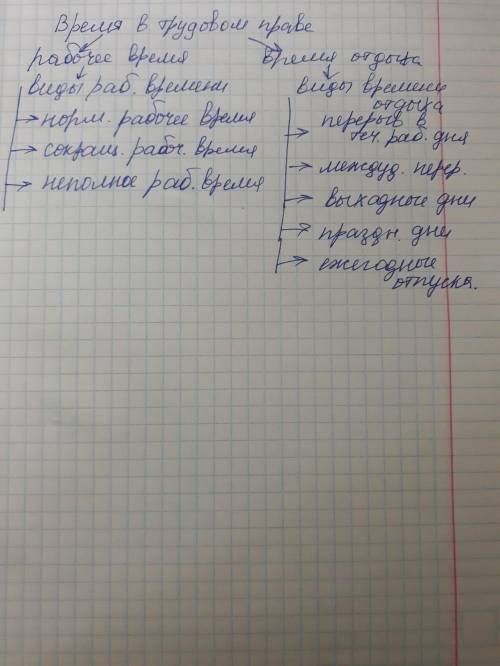 Время в трудовом праве
рабочее время
виды раб. времени
норм. рабочее время
сокращ. рабоч. время
неполное раб. время
время отдыха
виды времени
отдыха
перерыв в
теч. раб. дня
междуд. перер.
выходные дни
праздн. дни
ежегодные
отпуска.